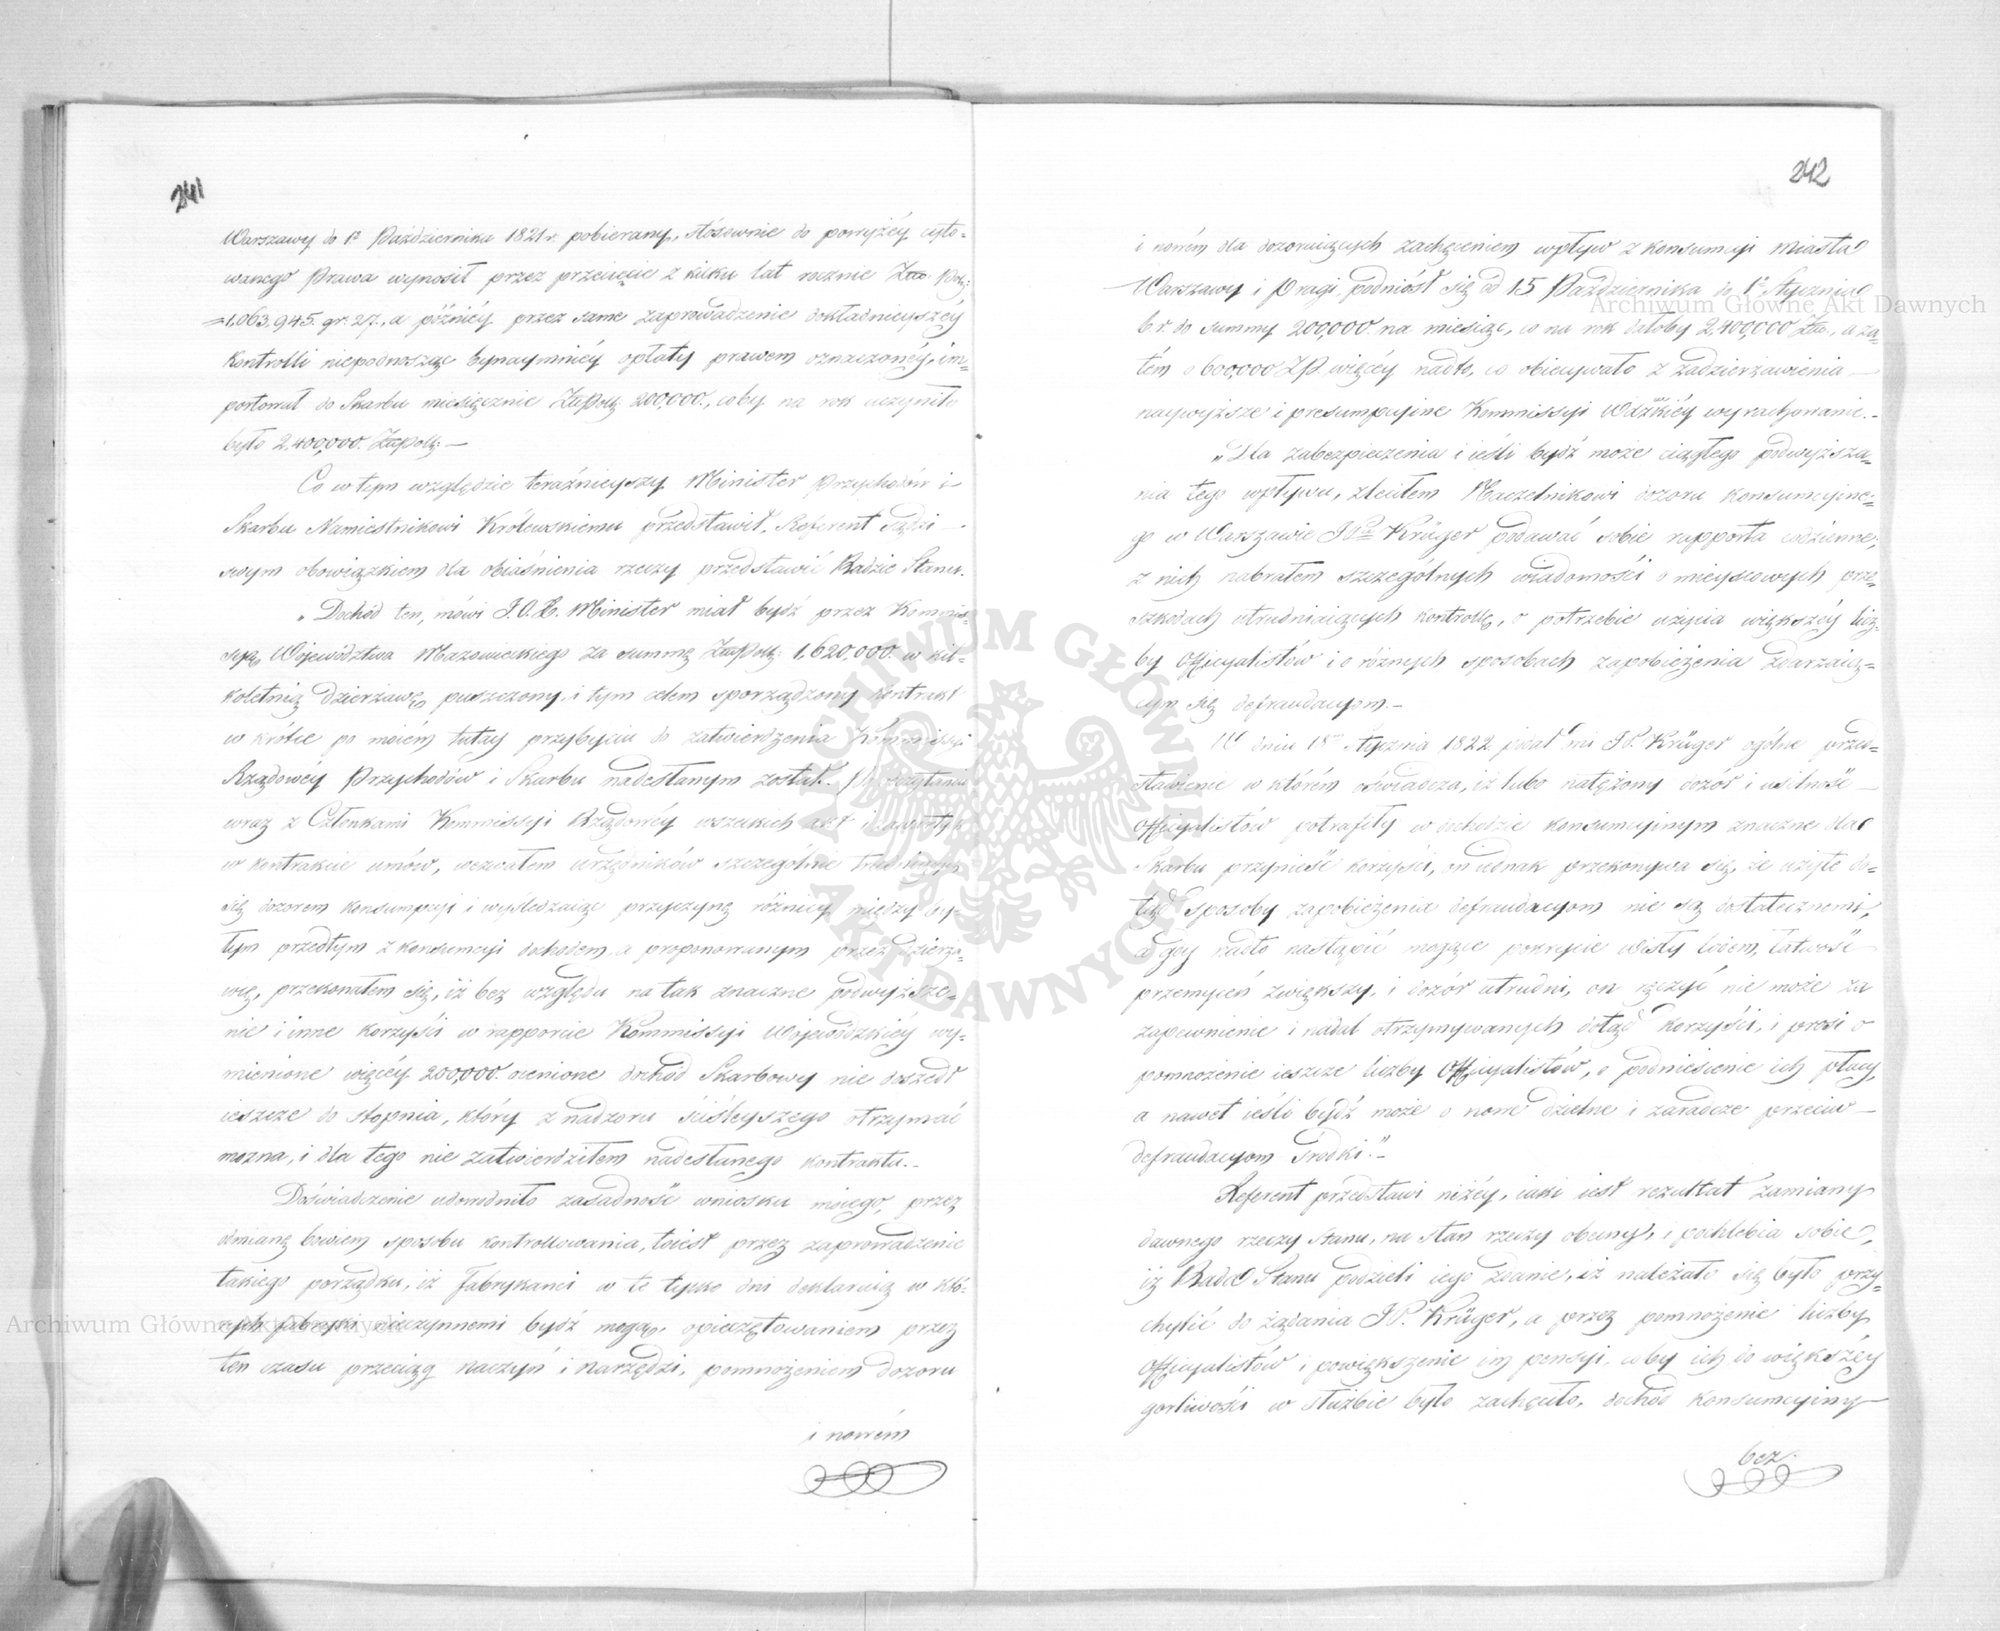 241
Warszawy do 1º Października 1821 r. pobierany, stósownie do powyżéy cyto-
wanego Prawa wynosił przez przecięcie z kilku lat rocznie Złło. Pol:
1,063,945. gr. 27., a późniéy przez same zaprowadzenie dokładnieyszéy
kontrolli niepodnosząc bynaymniéy opłaty prawem oznaczonéy, im-
portował do Skarbu miesięcznie Złłpolł. 200,000., coby na rok uczyniło
było 2,400,000. Złłpolł: —
Co w tym względzie teraźnieyszy Minister Przychodów i
Skarbu Namiestnikowi Królewskiemu przedstawił, Referent sądzi
swym obowiązkiem dla obiaśnienia rzeczy przedstawić Radzie Stanu.
„Dochód ten, mówi J.O.X. Minister miał bydź przez Kommis-
syję Województwa Mazowieckiego za summę Złłpolł: 1,620,000. w kil-
koletnią dzierżawę puszczony, i tym celem sporządzony kontrakt
w krótce po moiém tutay przybyciu do zatwierdzenia Kommissyi
Rządowéy Przychodów i Skarbu nadesłanym został. Po odczytaniu
wraz z Członkami Kommissyi Rządowéy wszelkich akt i zawartych
w kontrakcie umów, wezwałem urzędników szczególnie trudniących
się dozorem konsumpcyi i wyśledzaiąc przyczynę różnicy między by-
łym przedtym z konsumcyi dochodem, a proponowanym przez dzierża-
wę, przekonałem się, iż bez względu na tak znaczne podwyższe-
nie i inne korzyści w rapporcie Kommissyi Woiewódzkiéy wy-
mienione więcéy 200,000. cenione dochód Skarbowy nie doszedł
ieszcze do stopnia, który z nadzoru ściśleyszego otrzymać
można, i dla tego nie zatwierdziłem nadesłanego kontraktu. —
Doświadczenie udowodniło zasadność wniosku moiego, przez
odmianę bowiem sposobu kontrollowania, toiest przez zaprowadzenie
takiego porządku, iż fabrykanci w te tylko dni deklaruią w któ-
rych fabryki nieczynnemi bydź mogą, opieczętowaniem przez
ten czasu przeciąg naczyń i narzędzi, pomnożeniem dozoru
i nowém
242
i nowém dla dozoruiących zachęceniem wpływ z konsumcyi miasta
Warszawy i Pragi podniósł się od 15 Października do 1º Stycznia
b. r. do summy 200,000. na miesiąc, co na rok dałoby 2,400,000 Złło., a za-
tém o 600,000 ZłP. więcéy nadto, co obiecywało z zadzierżawienia
naywyższe i presumpcyjne Kommissyi Wdzkiéy wyrachowanie. —
„Dla zabezpieczenia i ieśli bydź może ciągłego podwyższa-
nia tego wpływu, zleciłem Naczelnikowi dozoru konsumcyine-
go w Warszawie J Pu Krüger podawać sobie rapporta codzienne,
z nich nabrałem szczególnych wiadomości o mieyscowych prze-
szkodach utrudniaiących kontrollę, o potrzebie użycia większéy licz-
by Officyalistów i o różnych sposobach zapobieżenia zdarzaią-
cym się defraudacyom. —
W dniu 18 Stycznia 1822. podał mi J P. Krüger ogólne przed-
stawienie w którém oświadcza, iż lubo natężony dozór i usilność
Officyalistów potrafiły w dochodzie konsumcyjnym znaczne dla
Skarbu przynieść korzyści, on iednak przekonywa się, że użyte do-
tąd sposoby zapobieżenia defraudacyom nie są dostatecznemi,
a gdy nadto nastąpić mogące pokrycie Wisły lodem, łatwość
przemyceń zwiększy, i dozór utrudni, on ręczyć nie może za
zapewnienie i nadal otrzymywanych dotąd korzyści, i prosi o
pomnożenie ieszcze liczby Officyalistów, o podniesienie ich płacy,
a nawet ieśli bydź może o nowe dzielne i zaradcze przeciw
defraudacyom środki." —
Referent przedstawi niżéy, iaki iest rezultat zamiany
dawnego rzeczy stanu, na stan rzeczy obecny, i pochlebia sobie,
iż Rada Stanu podzieli iego zdanie, iż należało się było przy-
chylić do żądania J P. Krüger, a przez pomnożenie liczby
Officyalistów i powiększenie im pensyi, coby ich do większéy
gorliwości w służbie było zachęciło, dochód konsumcyiny
bez
Archiwum Główne Akt Dawnych
ARCHIWUM GŁÓWNE AKT DAWNYCH
Archiwum Główne Akt Dawnych